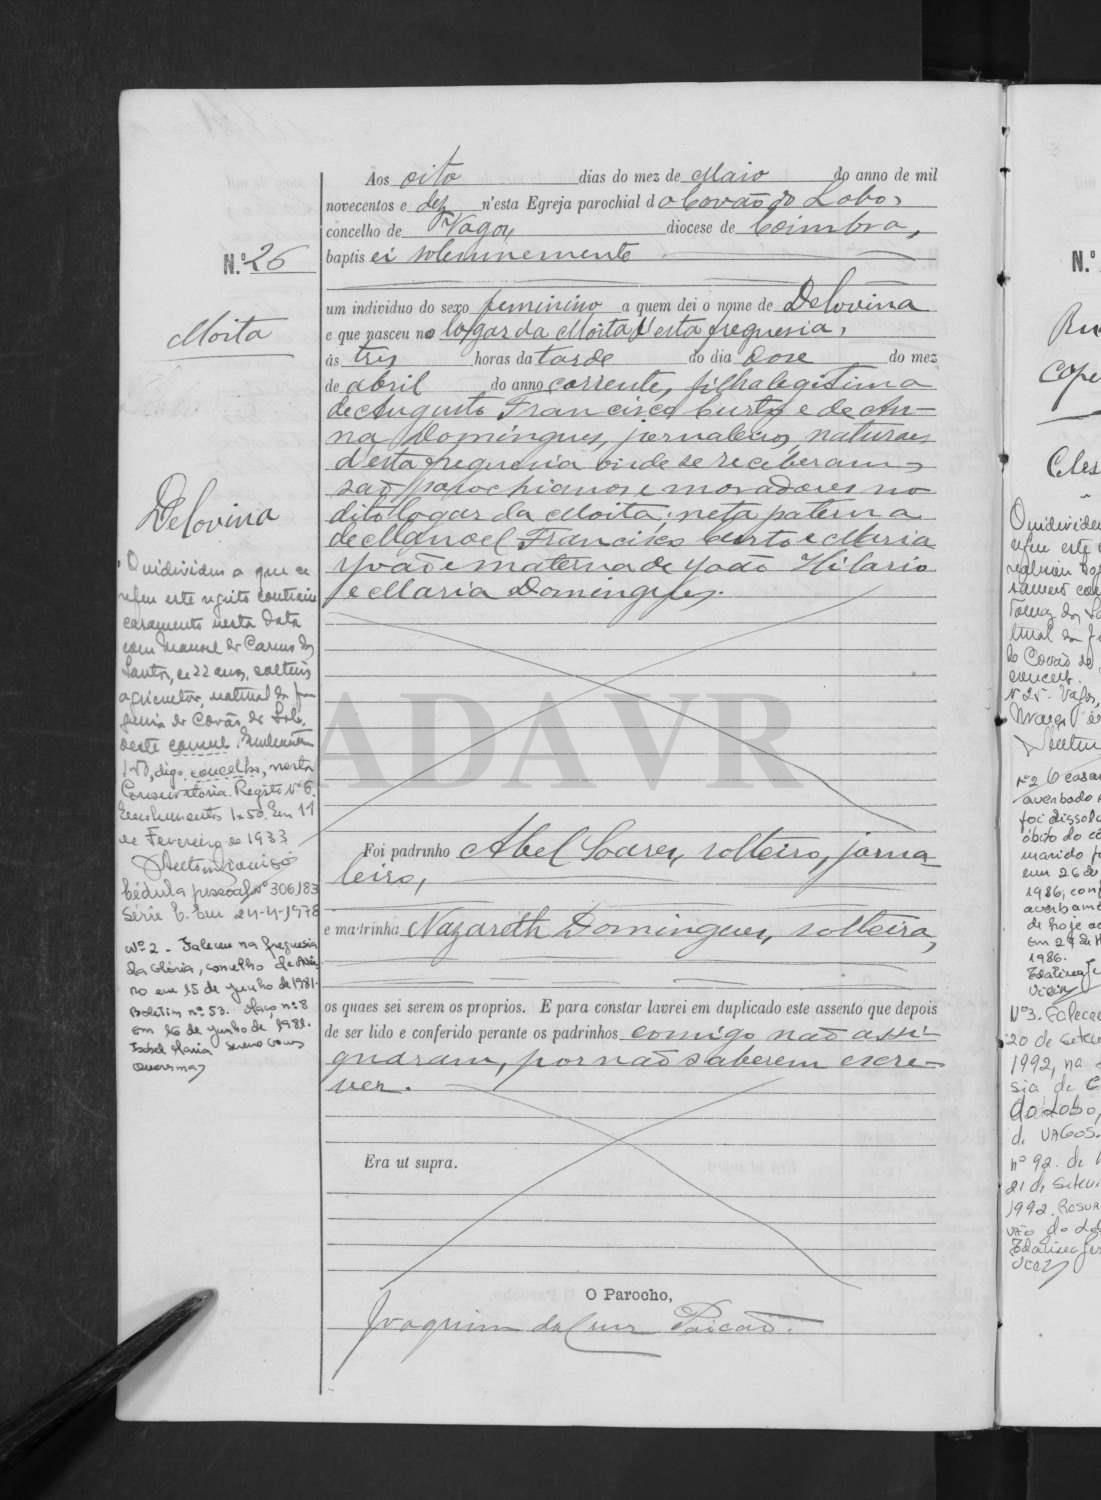 Aos oito dias do mez de Maio do anno de mil
novecentos e dez n'esta Egreja parochial do Covão do Lobo,
concelho de Vagos diocese de Coimbra,
baptisei solemnemente
N.º 26
um individuo do sexo feminino a quem dei o nome de Delovina
e que nasceu no logar da Moita d'esta freguesia,
Moita
ás tres horas da tarde do dia doze do mez
de abril do anno corrente, filha legitima
de Augusto Francisco Curto e de An-
na Domingues, jornaleiros, naturaes
d'esta freguesia onde se receberam,
são parochianos e moradores no
dito logar da Moita; neta paterna
de Manoel Francisco Curto e Maria
João e materna de João Hilario
e Maria Domingues.
Delovina
O individuo a que se
refere este registo contraiu
casamento nesta data
com Manuel do Carmo dos
Santos, de 22 anos, solteiro
agricultor, natural da fre
guesia de Covão do Lobo,
deste
digo, concelho, nesta
Conservatoria. Registo Nº 6.
Emolumentos 1$50. Em 11
de Fevereiro de 1933
Cédula pessoal Nº 306183
Série C. Em 24-4-1978
Nº 2 - Faleceu na freguesia
da Glória, concelho de Avei-
ro em 15 de Junho de 1981.
Boletim nº 53. Maço nº 8
Em 16 de Junho de 1981.
Isabel Maria
ADAVR
Foi padrinho Abel Soares, solteiro, jorna-
leiro,
e madrinha Nazareth Domingues, solteira,
os quaes sei serem os proprios. E para constar lavrei em duplicado este assento que depois
de ser lido e conferido perante os padrinhos comigo não assi-
gnaram, por não saberem escre-
ver.
Era ut supra.
O Parocho,
Joaquim da Cruz
N.º
Celes
Nº 2 O casa
averbado
foi dissol
óbito do
marido
em 26 de
1986,
averbame
de hoje
1986.
Nº 3. Faleceu
20 de Setem
1992, na
sia de C
do Lobo,
de VAGOS.
nº 92. de
21 de Setem
1992.